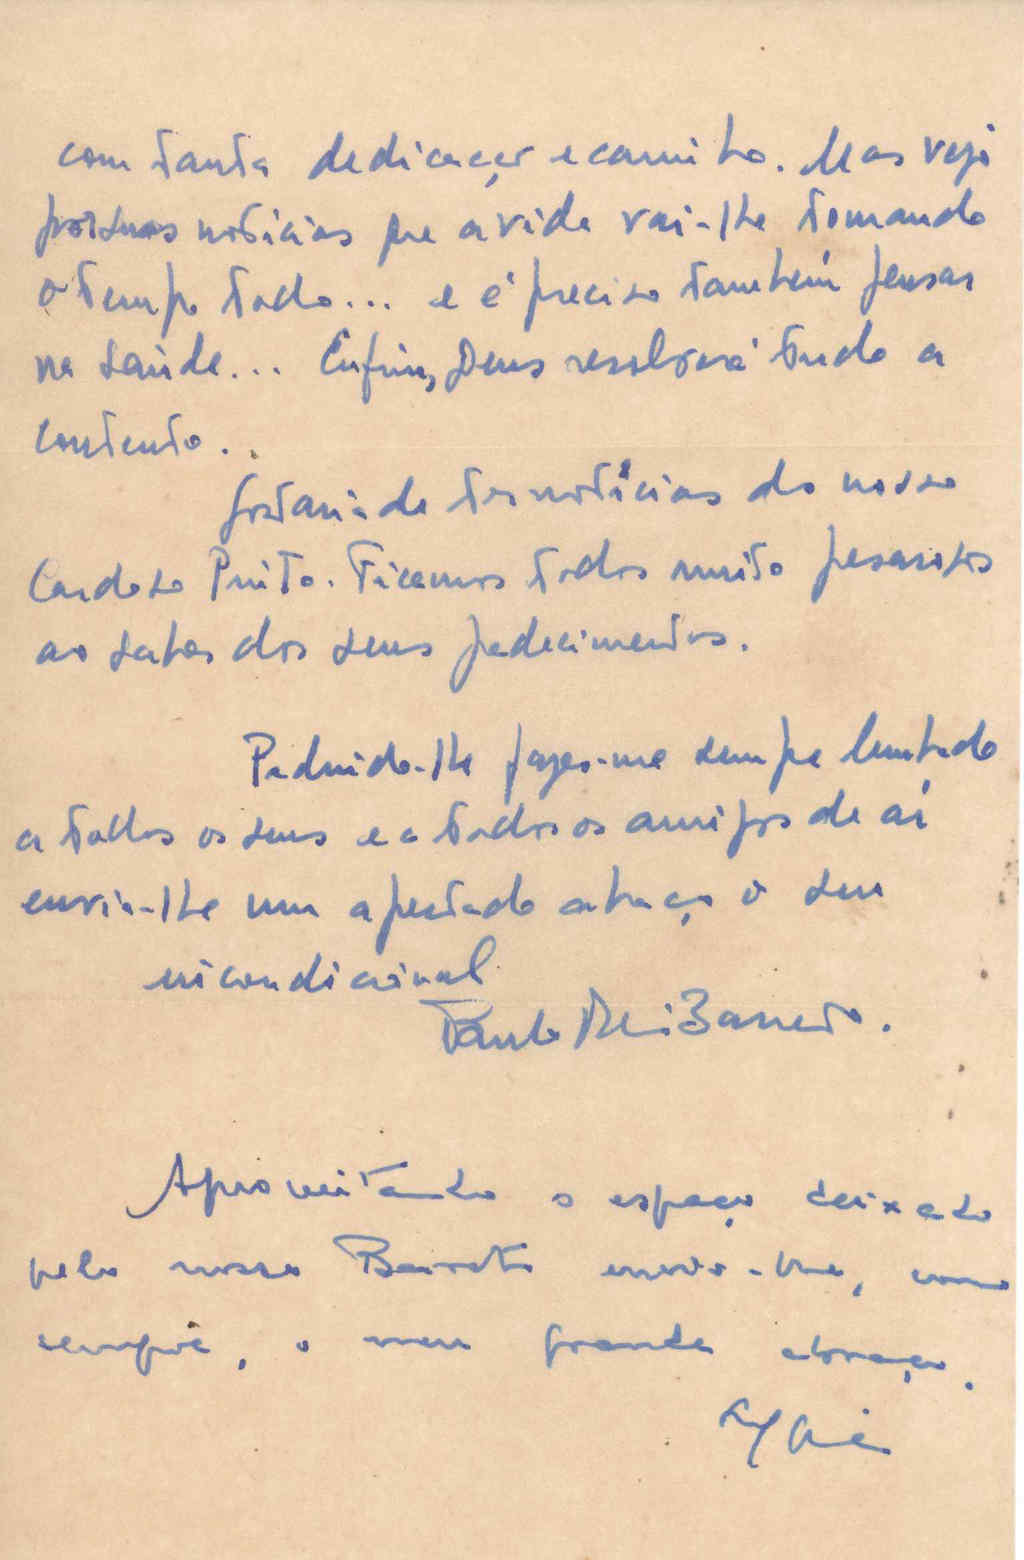 com tanta dedicação e carinho. Mas vejo
por suas notícias que a vida vai-lhe tomando
o tempo todo... e é preciso também pensar
na saúde... Enfim, Deus resolverá tudo a
contento.
Gostaria de ter notícias do nosso
Cardoso Pinto. Ficamos todos muito pesarosos
ao saber dos seus padecimentos.
Pedindo-lhe fazer-me sempre lembrado
a todos os seus e a todos os amigos de aí
envia-lhe um apertado abraço o seu
incondicional
Paulo Barreto.
Aproveitando o espaço deixado
pelo nosso Barreto envio-lhe, como
sempre, o meu grande abraço.